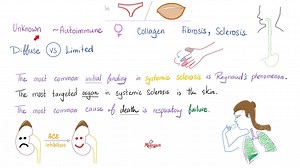 Unknown ~Autoimmune ♀ Collagen Fibrosis, Sclerosis
Diffuse vs Limited
The most common initial finding in systemic sclerosis is Raynaud's phenomenon.
The most targeted organ in systemic sclerosis is the skin.
The most common cause of death is respiratory failure.
ACE
inhibitors